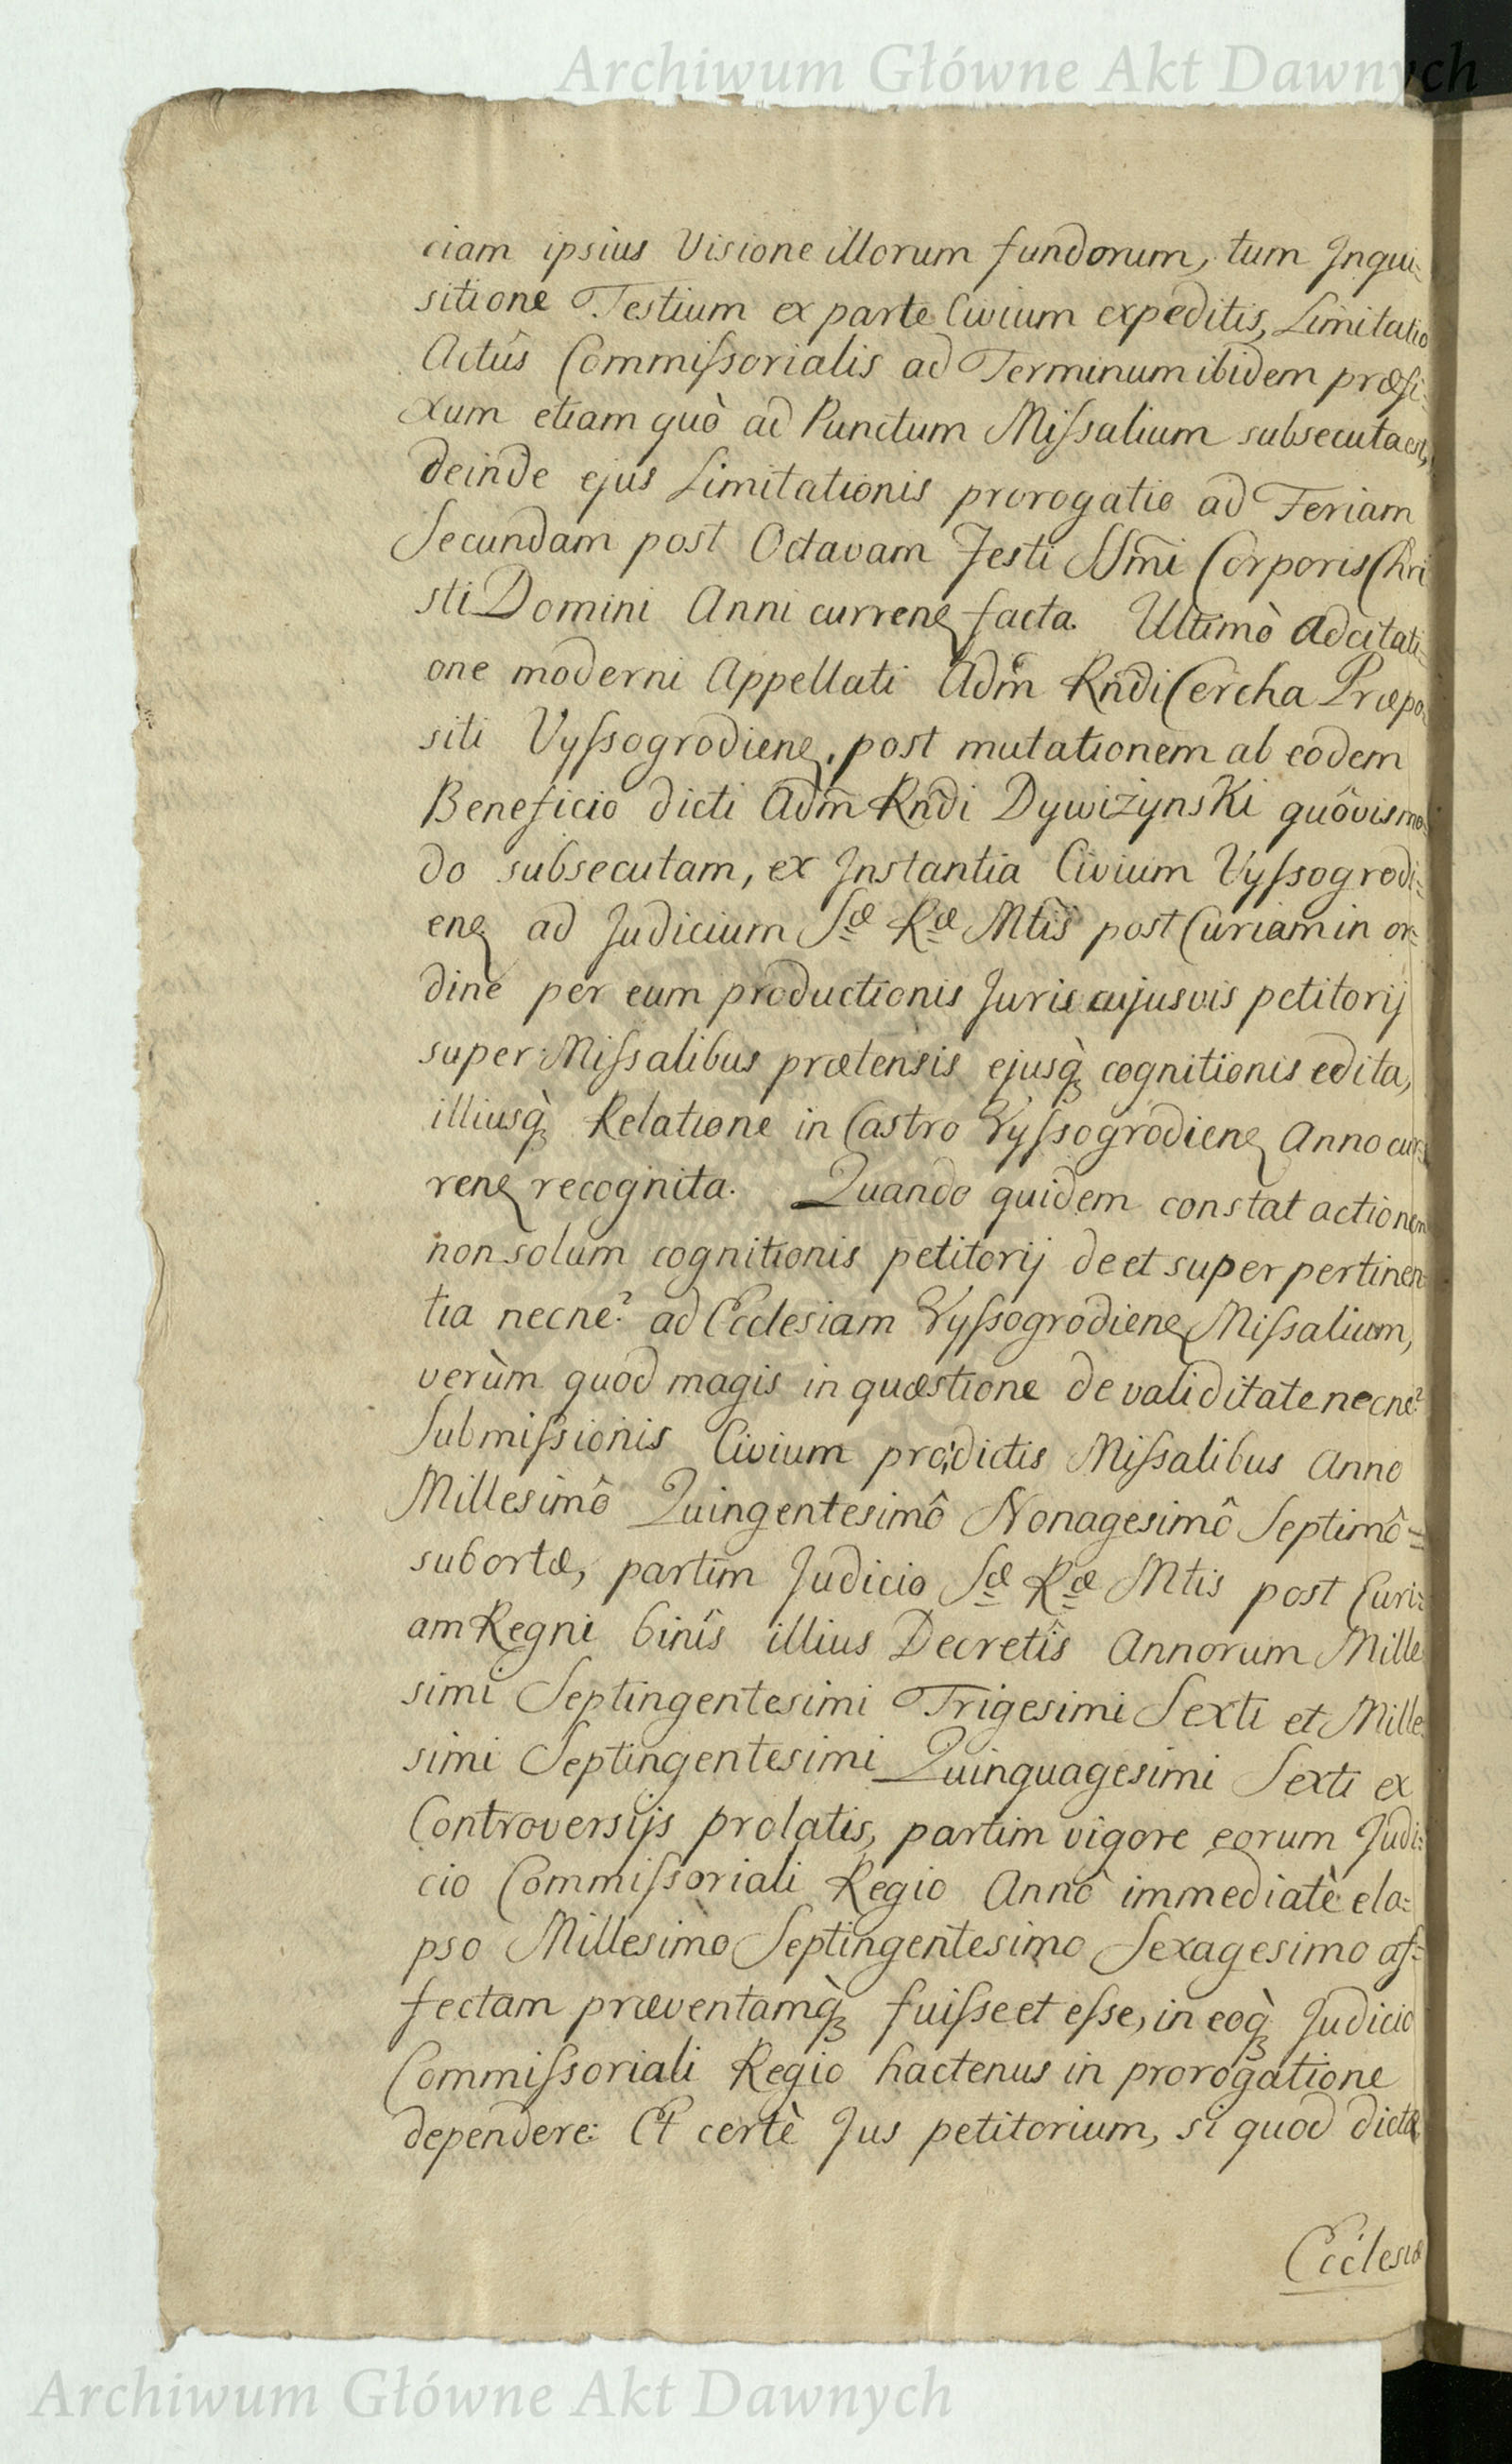 Archiwum Główne Akt Dawnych
ciam ipsius Visione illorum fundorum, tum Inqui-
sitione Testium ex parte Civium expeditis, Limitatio
Actûs Commissorialis ad Terminum ibidem præfi-
xum etiam quò ad Punctum Missalium subsecuta est,
deinde ejus Limitationis prorogatio ad Feriam
Secundam post Octavam Festi SSmi Corporis Chri
sti Domini Anni curreñ facta. Ultimò Adcitati-
one moderni Appellati Adm Rndi Cercha Præpo-
siti Vyssogrodieñ, post mutationem ab eodem
Beneficio dicti Adm Rndi Dywiżynski quôvismo-
do subsecutam, ex Instantia Civium Vyssogrodi-
eñ ad Judicium Sæ Ræ Mtis post Curiam in or-
dine per eum productionis Juris cujusvis petitorij
super Missalibus prætensis ejusq̀ cognitionis edita,
illiusq̀ Relatione in Castro Vyssogrodieñ Anno cur-
reñ recognita. Quando quidem constat actionem
non solum cognitionis petitorij de et super pertinen-
tia necne? ad Ecclesiam Vyssogrodieñ Missalium,
verùm quod magis in quæstione de validitate necne?
Submissionis Civium pro dictis Missalibus Anno
Millesimô Quingentesimô Nonagesimô Septimô
subortæ, partim Judicio Sæ Ræ Mtis post Curi-
am Regni binîs illius Decretîs Annorum Mille
simi Septingentesimi Trigesimi Sexti et Mille
simi Septingentesimi Quinquagesimi Sexti ex
Controversijs prolatis, partim vigore eorum Judi-
cio Commissoriali Regio Annô immediatè ela-
pso Millesimo Septingentesimo Sexagesimo af-
fectam præventamq̀ fuisse et esse, in eoq̀ Judicio
Commissoriali Regio hactenus in prorogatione
dependere: Et certè Jus petitorium, si quod dictæ
Ecclesiæ
Archiwum Główne Akt Dawnych